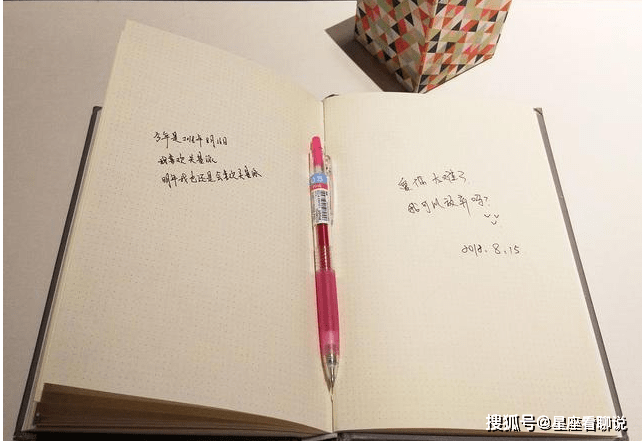 今年是2018年8月16日
我喜欢吴基
明年我也还是会喜欢吴基
爱你太难了
我可以放弃吗?
2018.8.15
搜狐号@星座看聊说